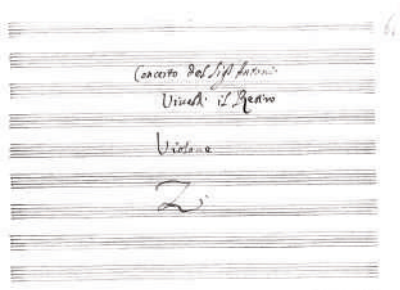 Concerto del Sig.r Antoni:
Vivaldi il Retiro
Violone